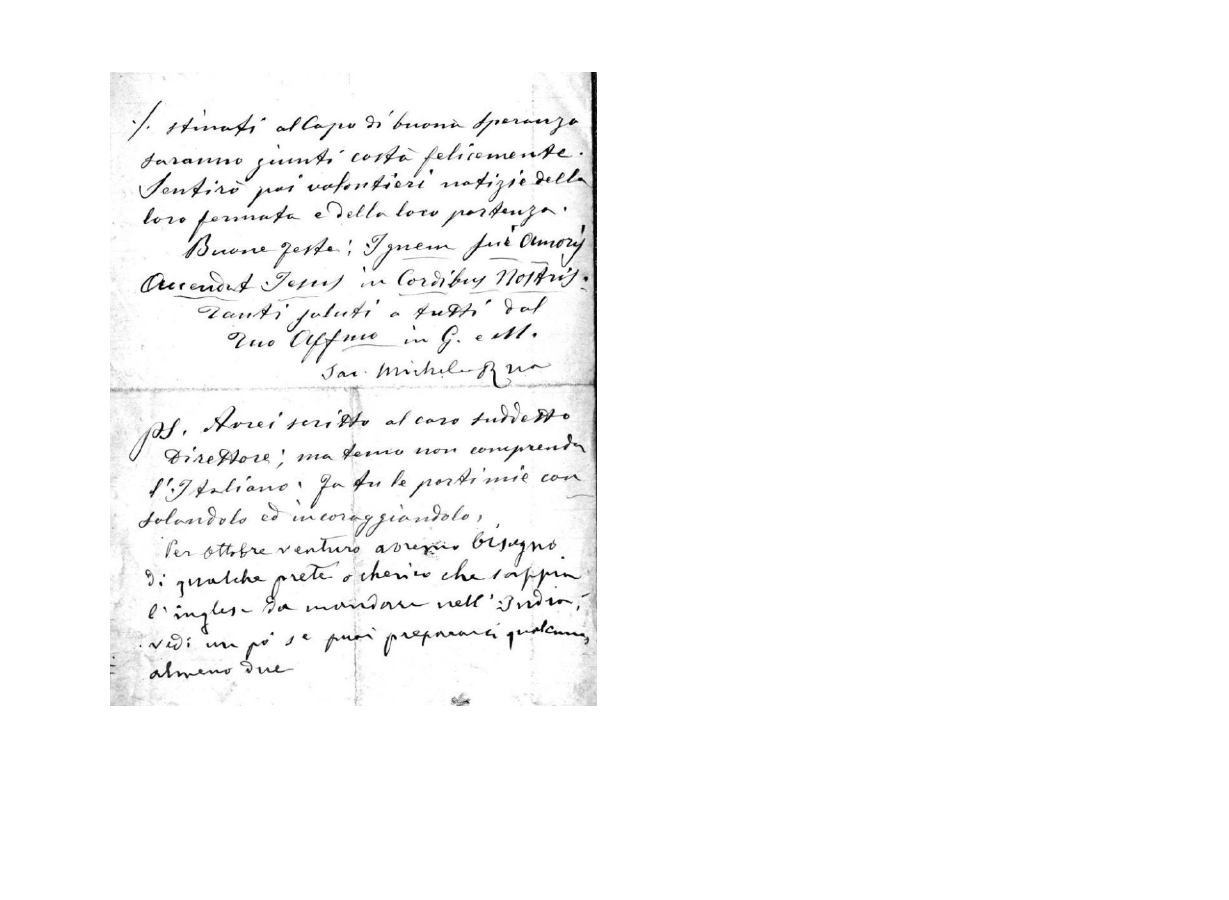 ./. stinati al Capo di buona speranza
saranno giunti costà felicemente.
Sentirò poi volontieri notizie della
loro fermata e della loro partenza.
Buone feste; Ignem sui Amoris
Accendat Jesus in Cordibus Nostris.
Tanti saluti a tutti dal
Tuo Affmo in G. e M.
Sac. Michele Rua
PS. Avrei scritto al caro suddetto
Direttore; ma temo non comprenda
l'Italiano. Fa tu le parti mie con
solandolo ed incoraggiandolo,
Per ottobre venturo avremo bisogno
di qualche prete o cherico che sappia
l'inglese da mandare nell'India;
vedi un pò se puoi prepararci qualcuno,
almeno due